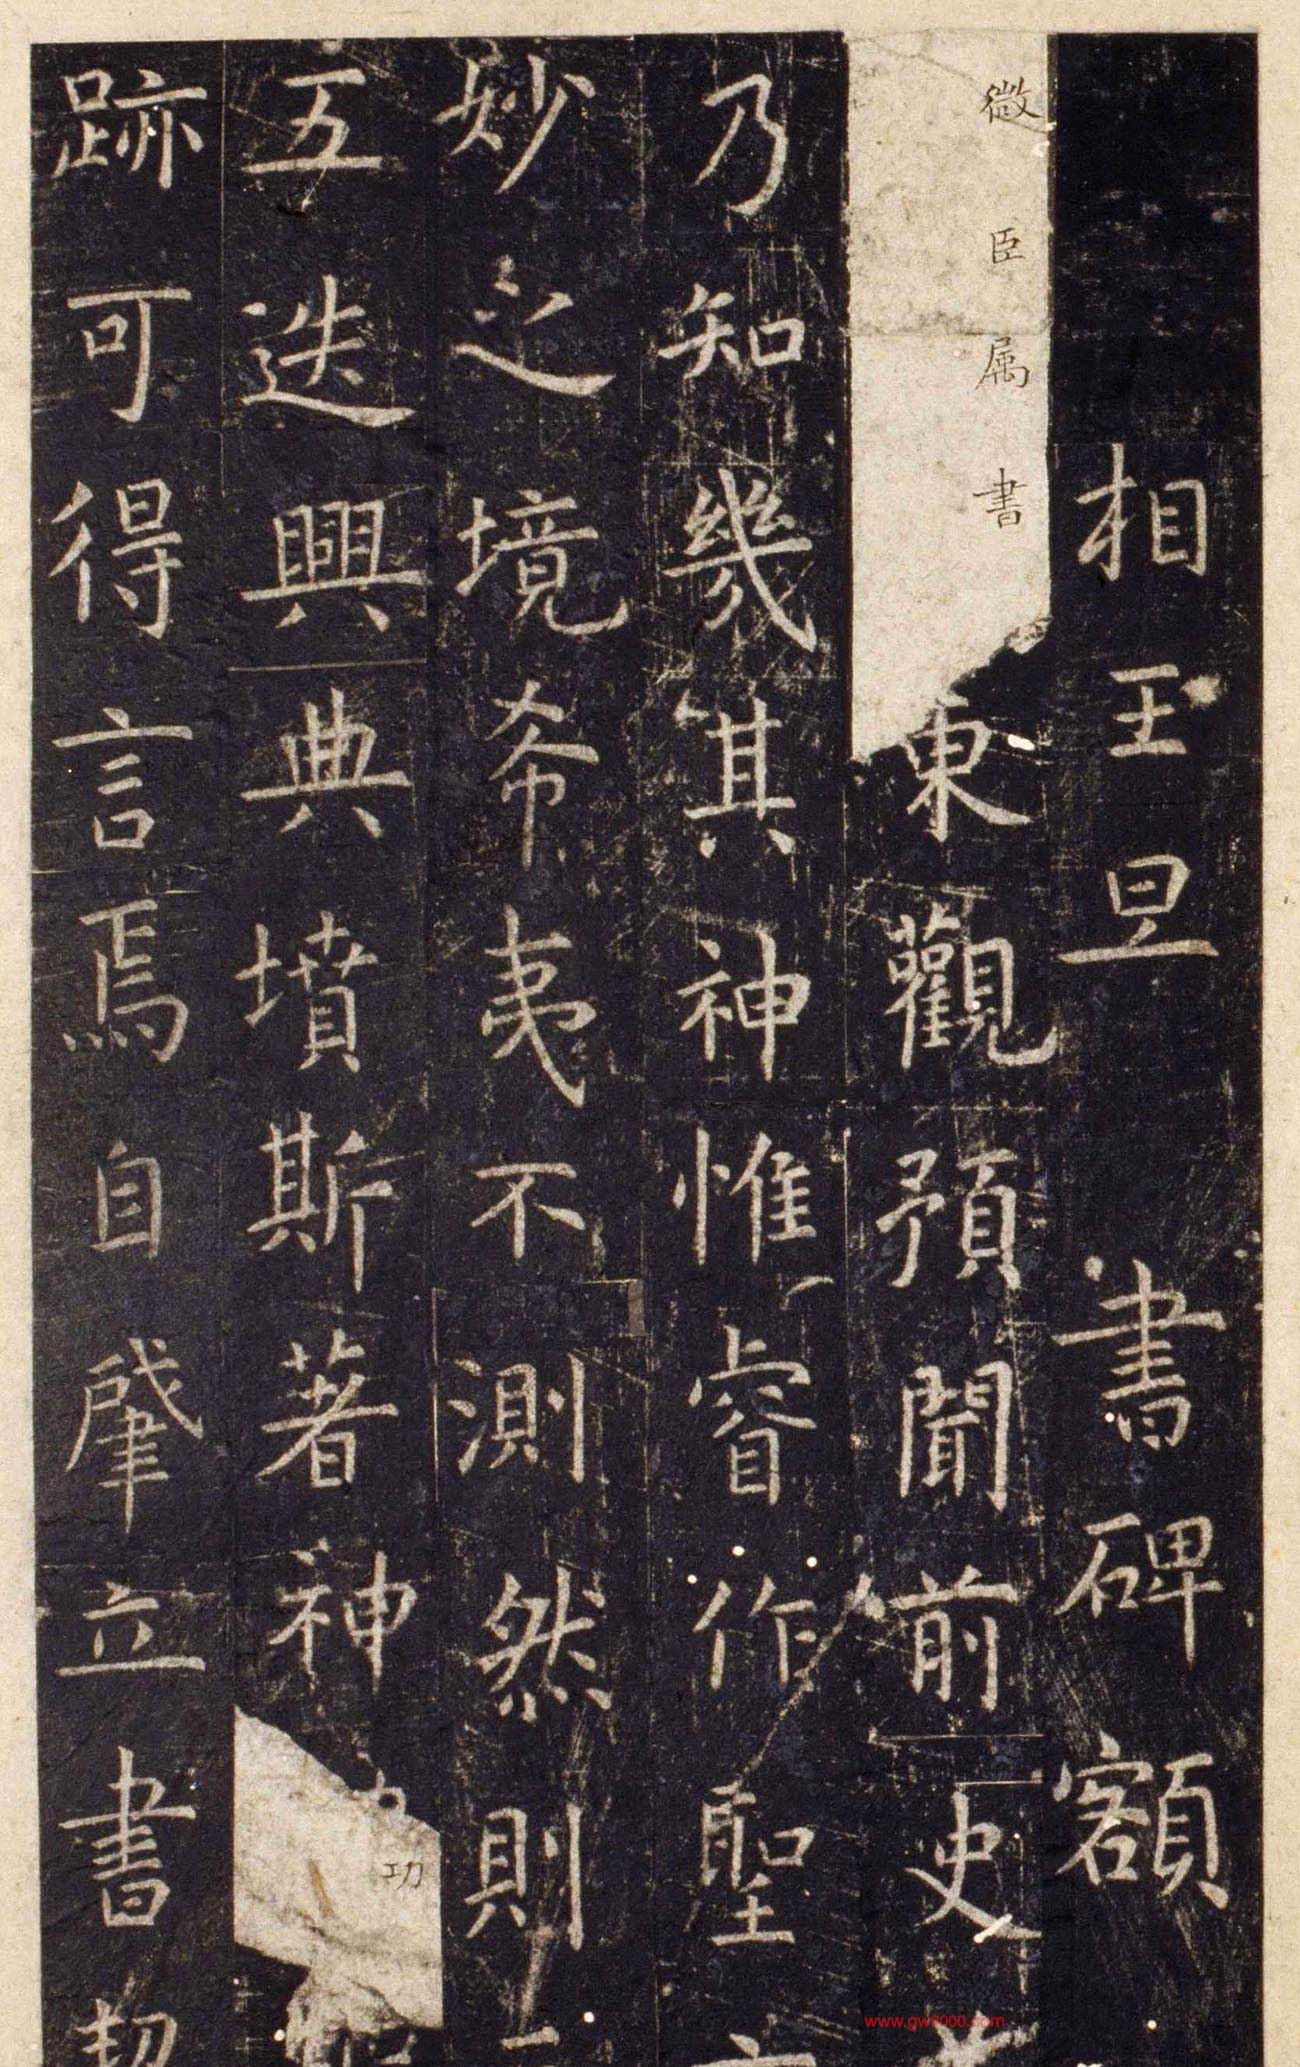 相王旦書碑額
微臣属書
東觀預聞前史
乃知幾其神惟睿作聖
妙之境希夷不測然則
五迭興典墳斯著神
功
跡可得言焉自肇立書契
www.gw8000.com